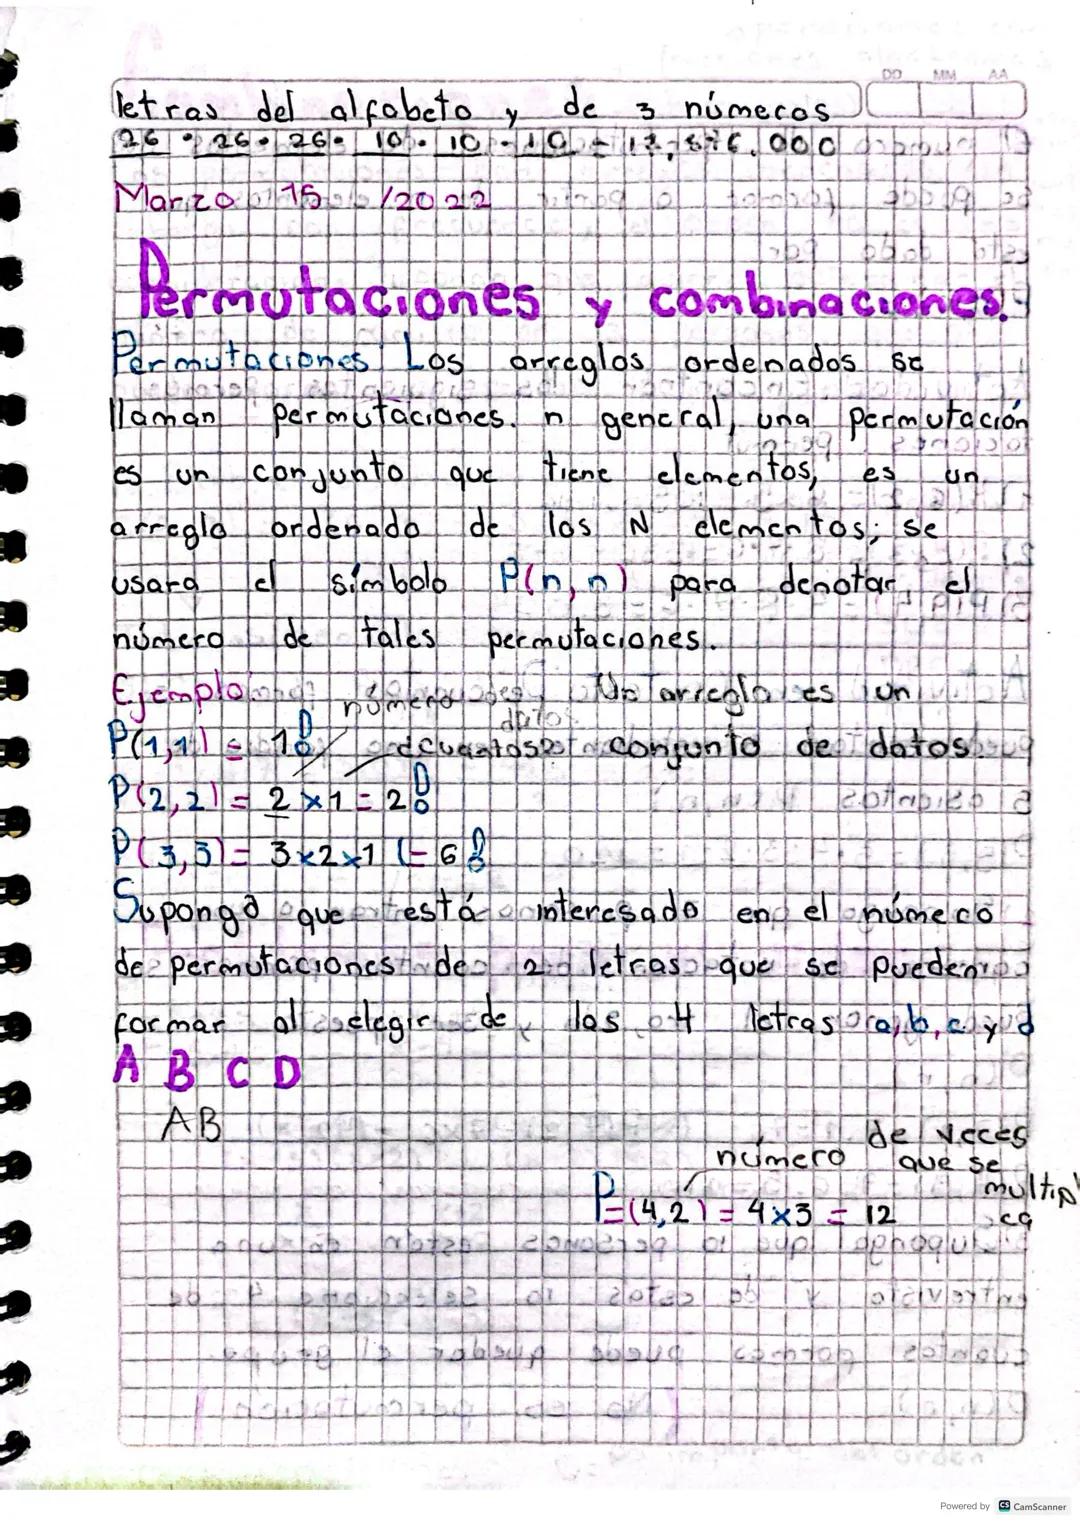 DD MM AA
letras del alfabeto y de 3 números
26 • 26 • 26 • 10 • 10 • 10 = 17,576.000
Marzo 15 /2022
Permutaciones y combinaciones.
Permutaciones Los arreglos ordenados se
llaman permutaciones. n general, una permutación
es un conjunto que tiene elementos, es un
arreglo ordenado de los N elementos; se
usara el símbolo P(n,n) para denotar el
número de tales permutaciones.
Ejemplo Un arreglo es un
número datos
P(1,1) = 1! cuantos conjunto de datos.
P(2,2) = 2x1 = 2!
P(3,3) = 3x2x1 = 6!
Supongo que está interesado en el número
de permutaciones de 2 letras que se pueden
formar al elegir de las 4 letras a, b, c y d
A B C D
AB
número de veces que se multiplica
P=(4,2) = 4x3 = 12
Powered by CS CamScanner